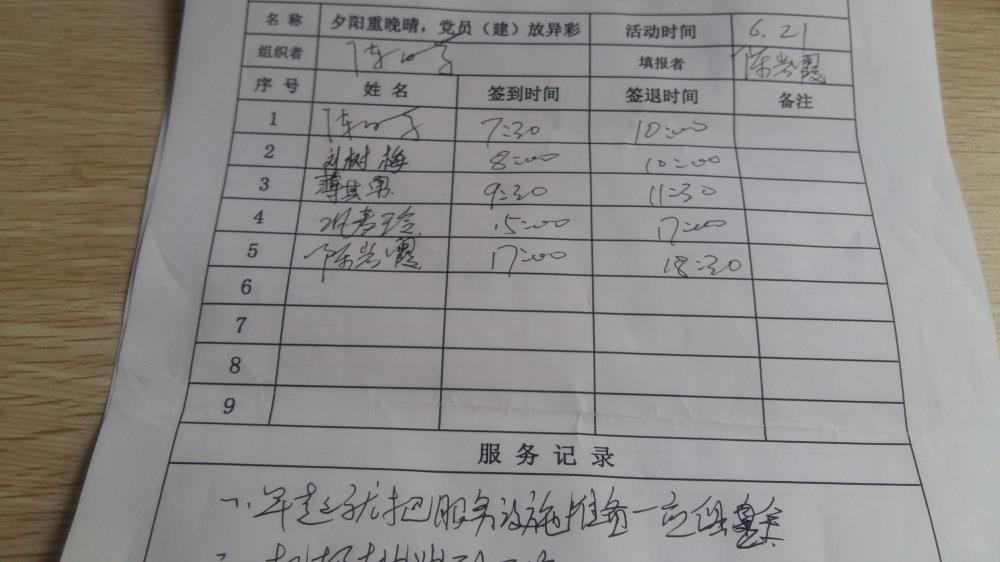 名称 夕阳重晚晴，党员（建）放异彩 活动时间 6.21
组织者 填报者 陈岩霞
序号 姓名 签到时间 签退时间 备注
1 7:30 10:00
2 刘树梅 8:00 10:00
3 薄其男 9:30 11:30
4 15:00 17:00
5 陈岩霞 17:00 18:30
6
7
8
9
服务记录
一、早起就把服务设施准备一应俱全